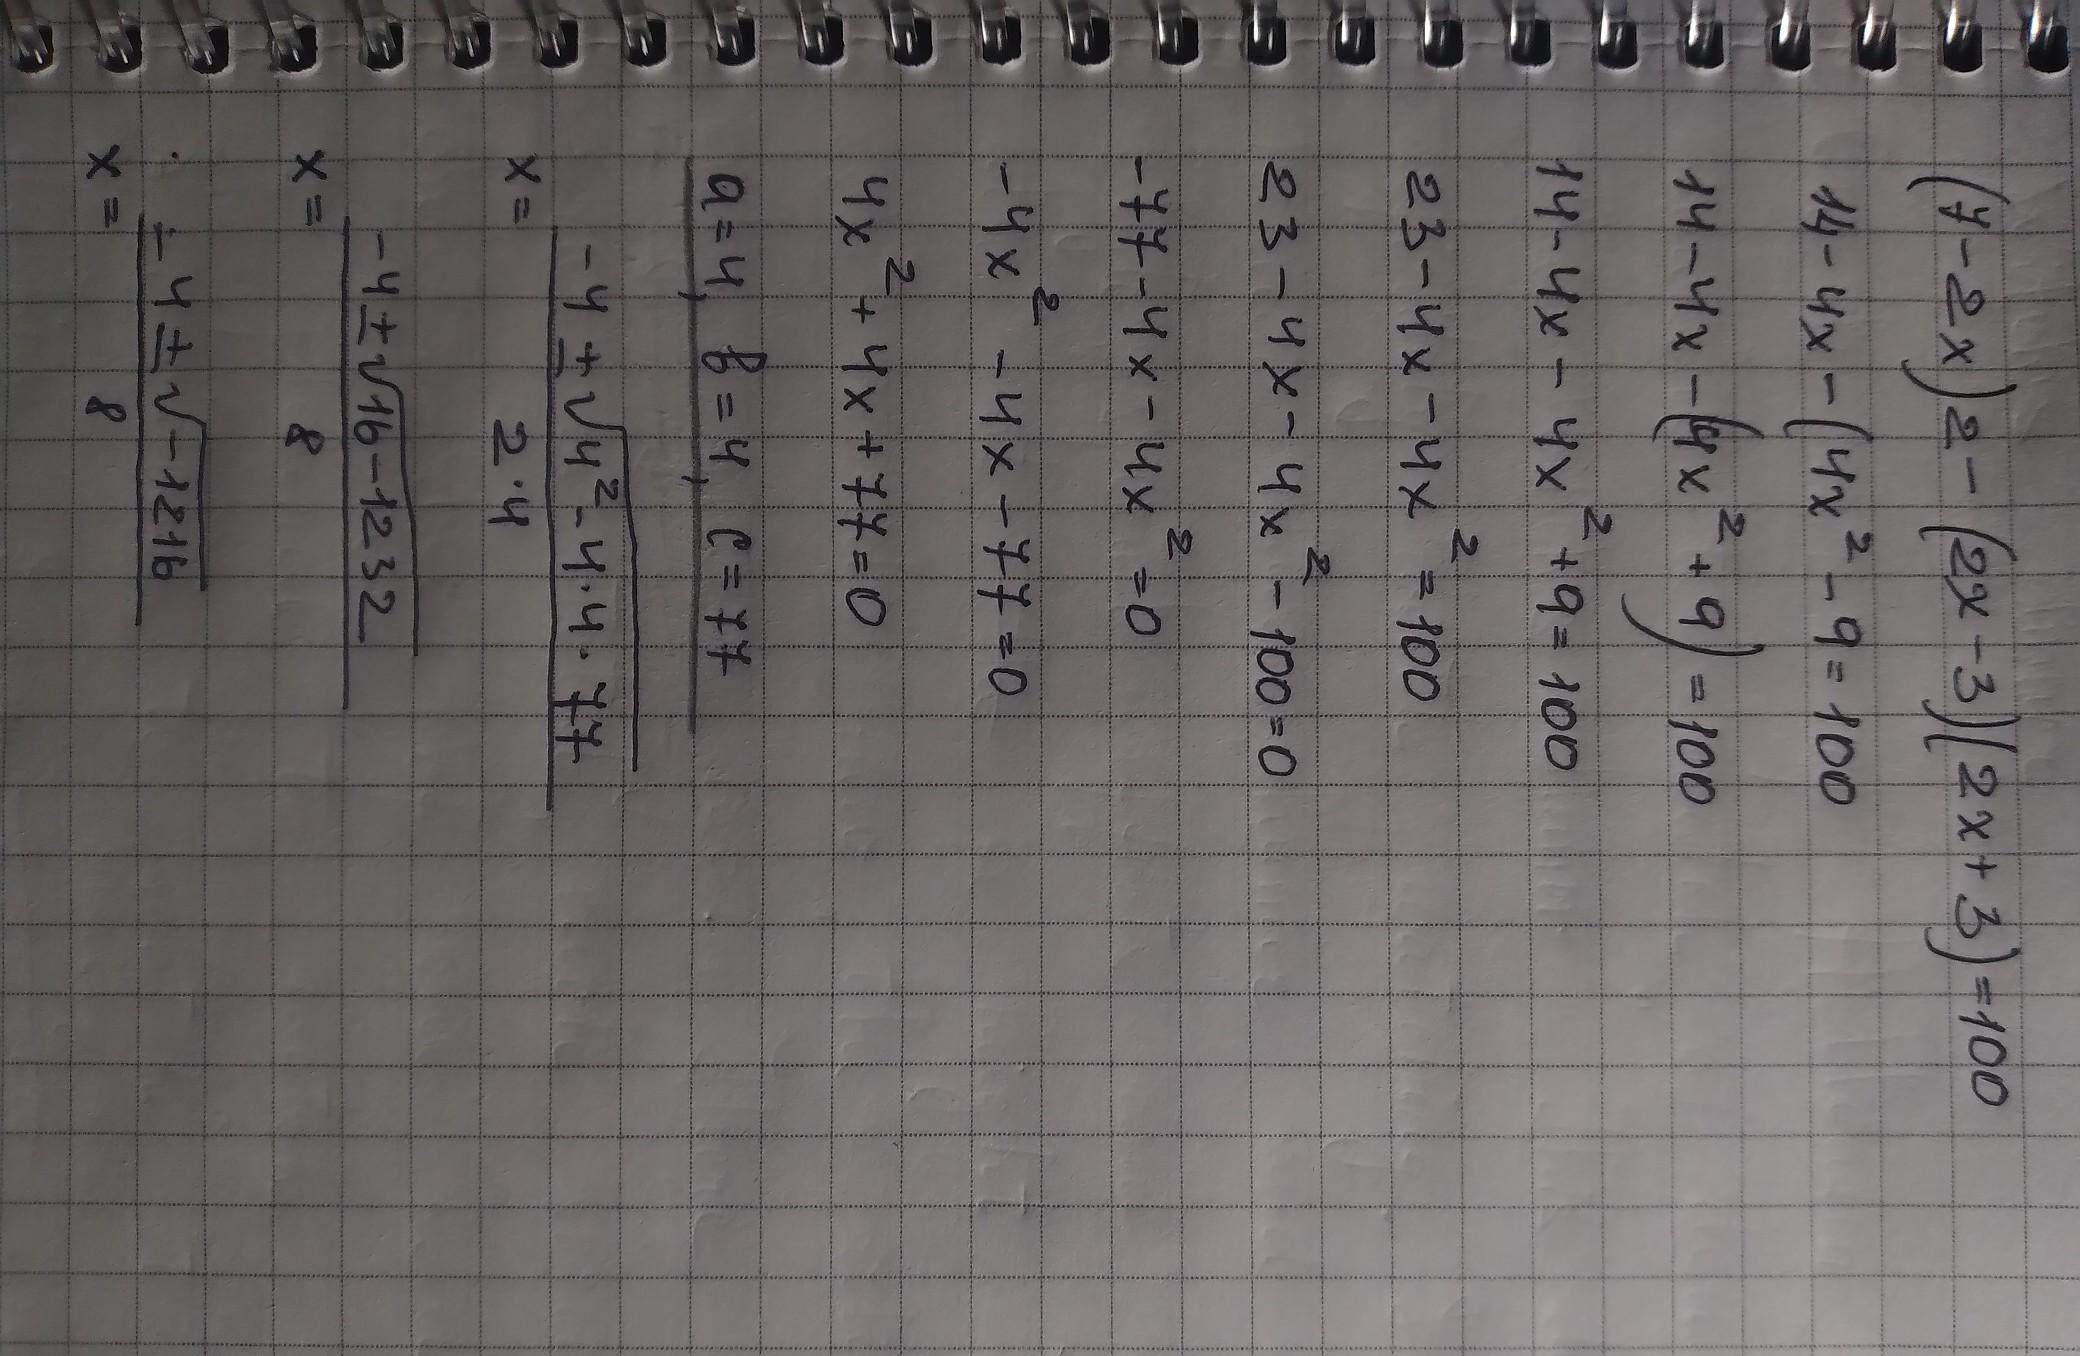 (7-2x)2-(2x-3)(2x+3)=100
14-4x-(4x²-9=100
14-4x-(4x²+9)=100
14-4x-4x²+9=100
23-4x-4x²=100
23-4x-4x²-100=0
-77-4x-4x²=0
-4x²-4x-77=0
4x²+4x+77=0
a=4, b=4, c=77
x= (-4±√(4²-4·4·77))/(2·4)
x= (-4±√(16-1232))/8
x= (-4±√(-1216))/8